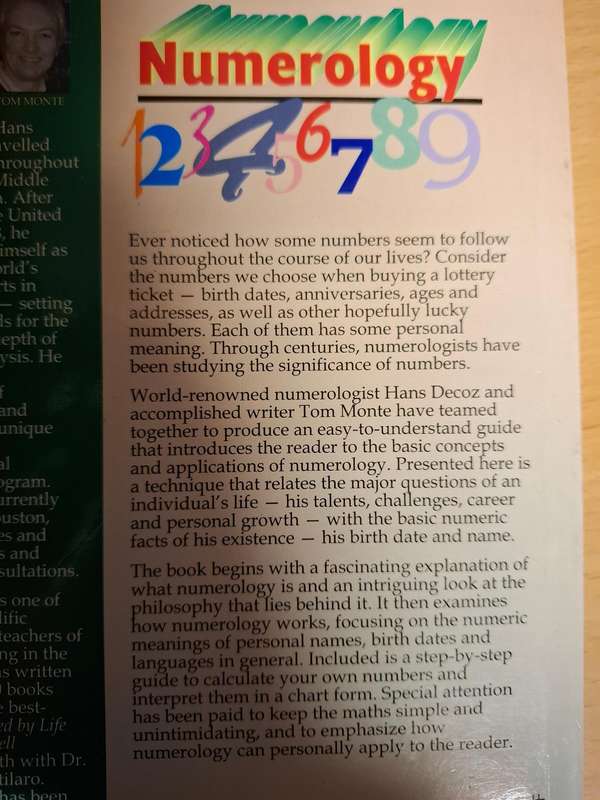 TOM MONTE
Hans
avelled
hroughout
Middle
. After
e United
, he
imself as
orld's
rts in
— setting
ds for the
depth of
ysis. He
f
and
unique
al
ogram.
urrently
ouston,
es and
s and
sultations.
s one of
lific
teachers of
ng in the
as written
0 books
e best-
ed by Life
ell
th with Dr.
tilaro.
has been
Numerology
1 2 3 4 5 6 7 8 9
Ever noticed how some numbers seem to follow
us throughout the course of our lives? Consider
the numbers we choose when buying a lottery
ticket — birth dates, anniversaries, ages and
addresses, as well as other hopefully lucky
numbers. Each of them has some personal
meaning. Through centuries, numerologists have
been studying the significance of numbers.
World-renowned numerologist Hans Decoz and
accomplished writer Tom Monte have teamed
together to produce an easy-to-understand guide
that introduces the reader to the basic concepts
and applications of numerology. Presented here is
a technique that relates the major questions of an
individual's life — his talents, challenges, career
and personal growth — with the basic numeric
facts of his existence — his birth date and name.
The book begins with a fascinating explanation of
what numerology is and an intriguing look at the
philosophy that lies behind it. It then examines
how numerology works, focusing on the numeric
meanings of personal names, birth dates and
languages in general. Included is a step-by-step
guide to calculate your own numbers and
interpret them in a chart form. Special attention
has been paid to keep the maths simple and
unintimidating, and to emphasize how
numerology can personally apply to the reader.